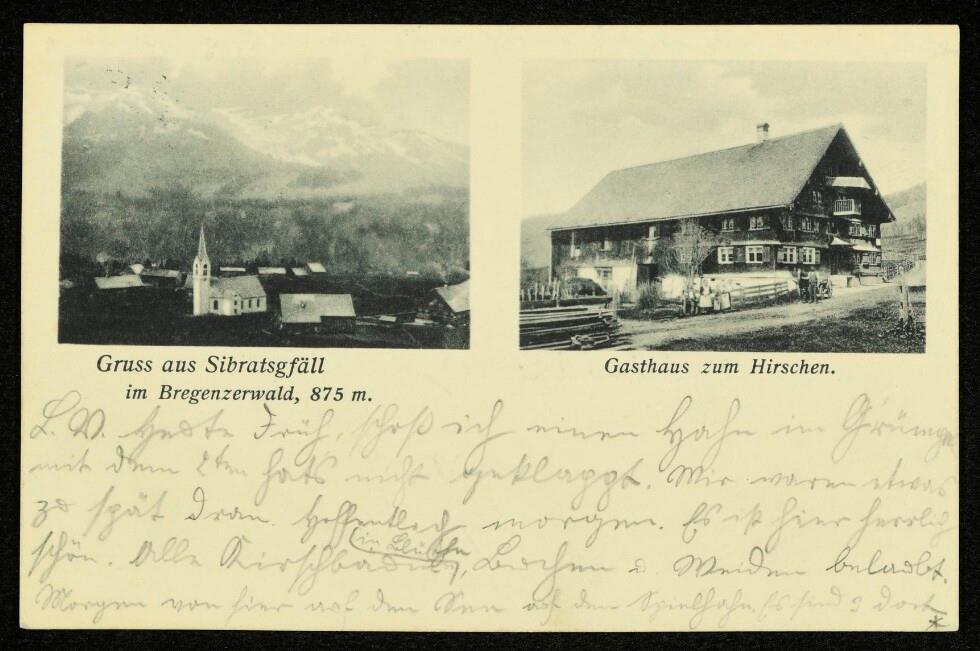 Gruss aus Sibratsgfäll
im Bregenzerwald, 875 m.
Gasthaus zum Hirschen.
L. V. Heute Früh, schoß ich einen Hahn im
mit dem 2ten hats nicht geklappt. Wir waren etwas
zu spät dran. Hoffentlich morgen. Es ist hier herrlich
schön. Alle (in Blüthe), Buchen u Weiden belaubt.
Morgen von hier auf den auf den Spielhahn. Es sind 3 dort
*